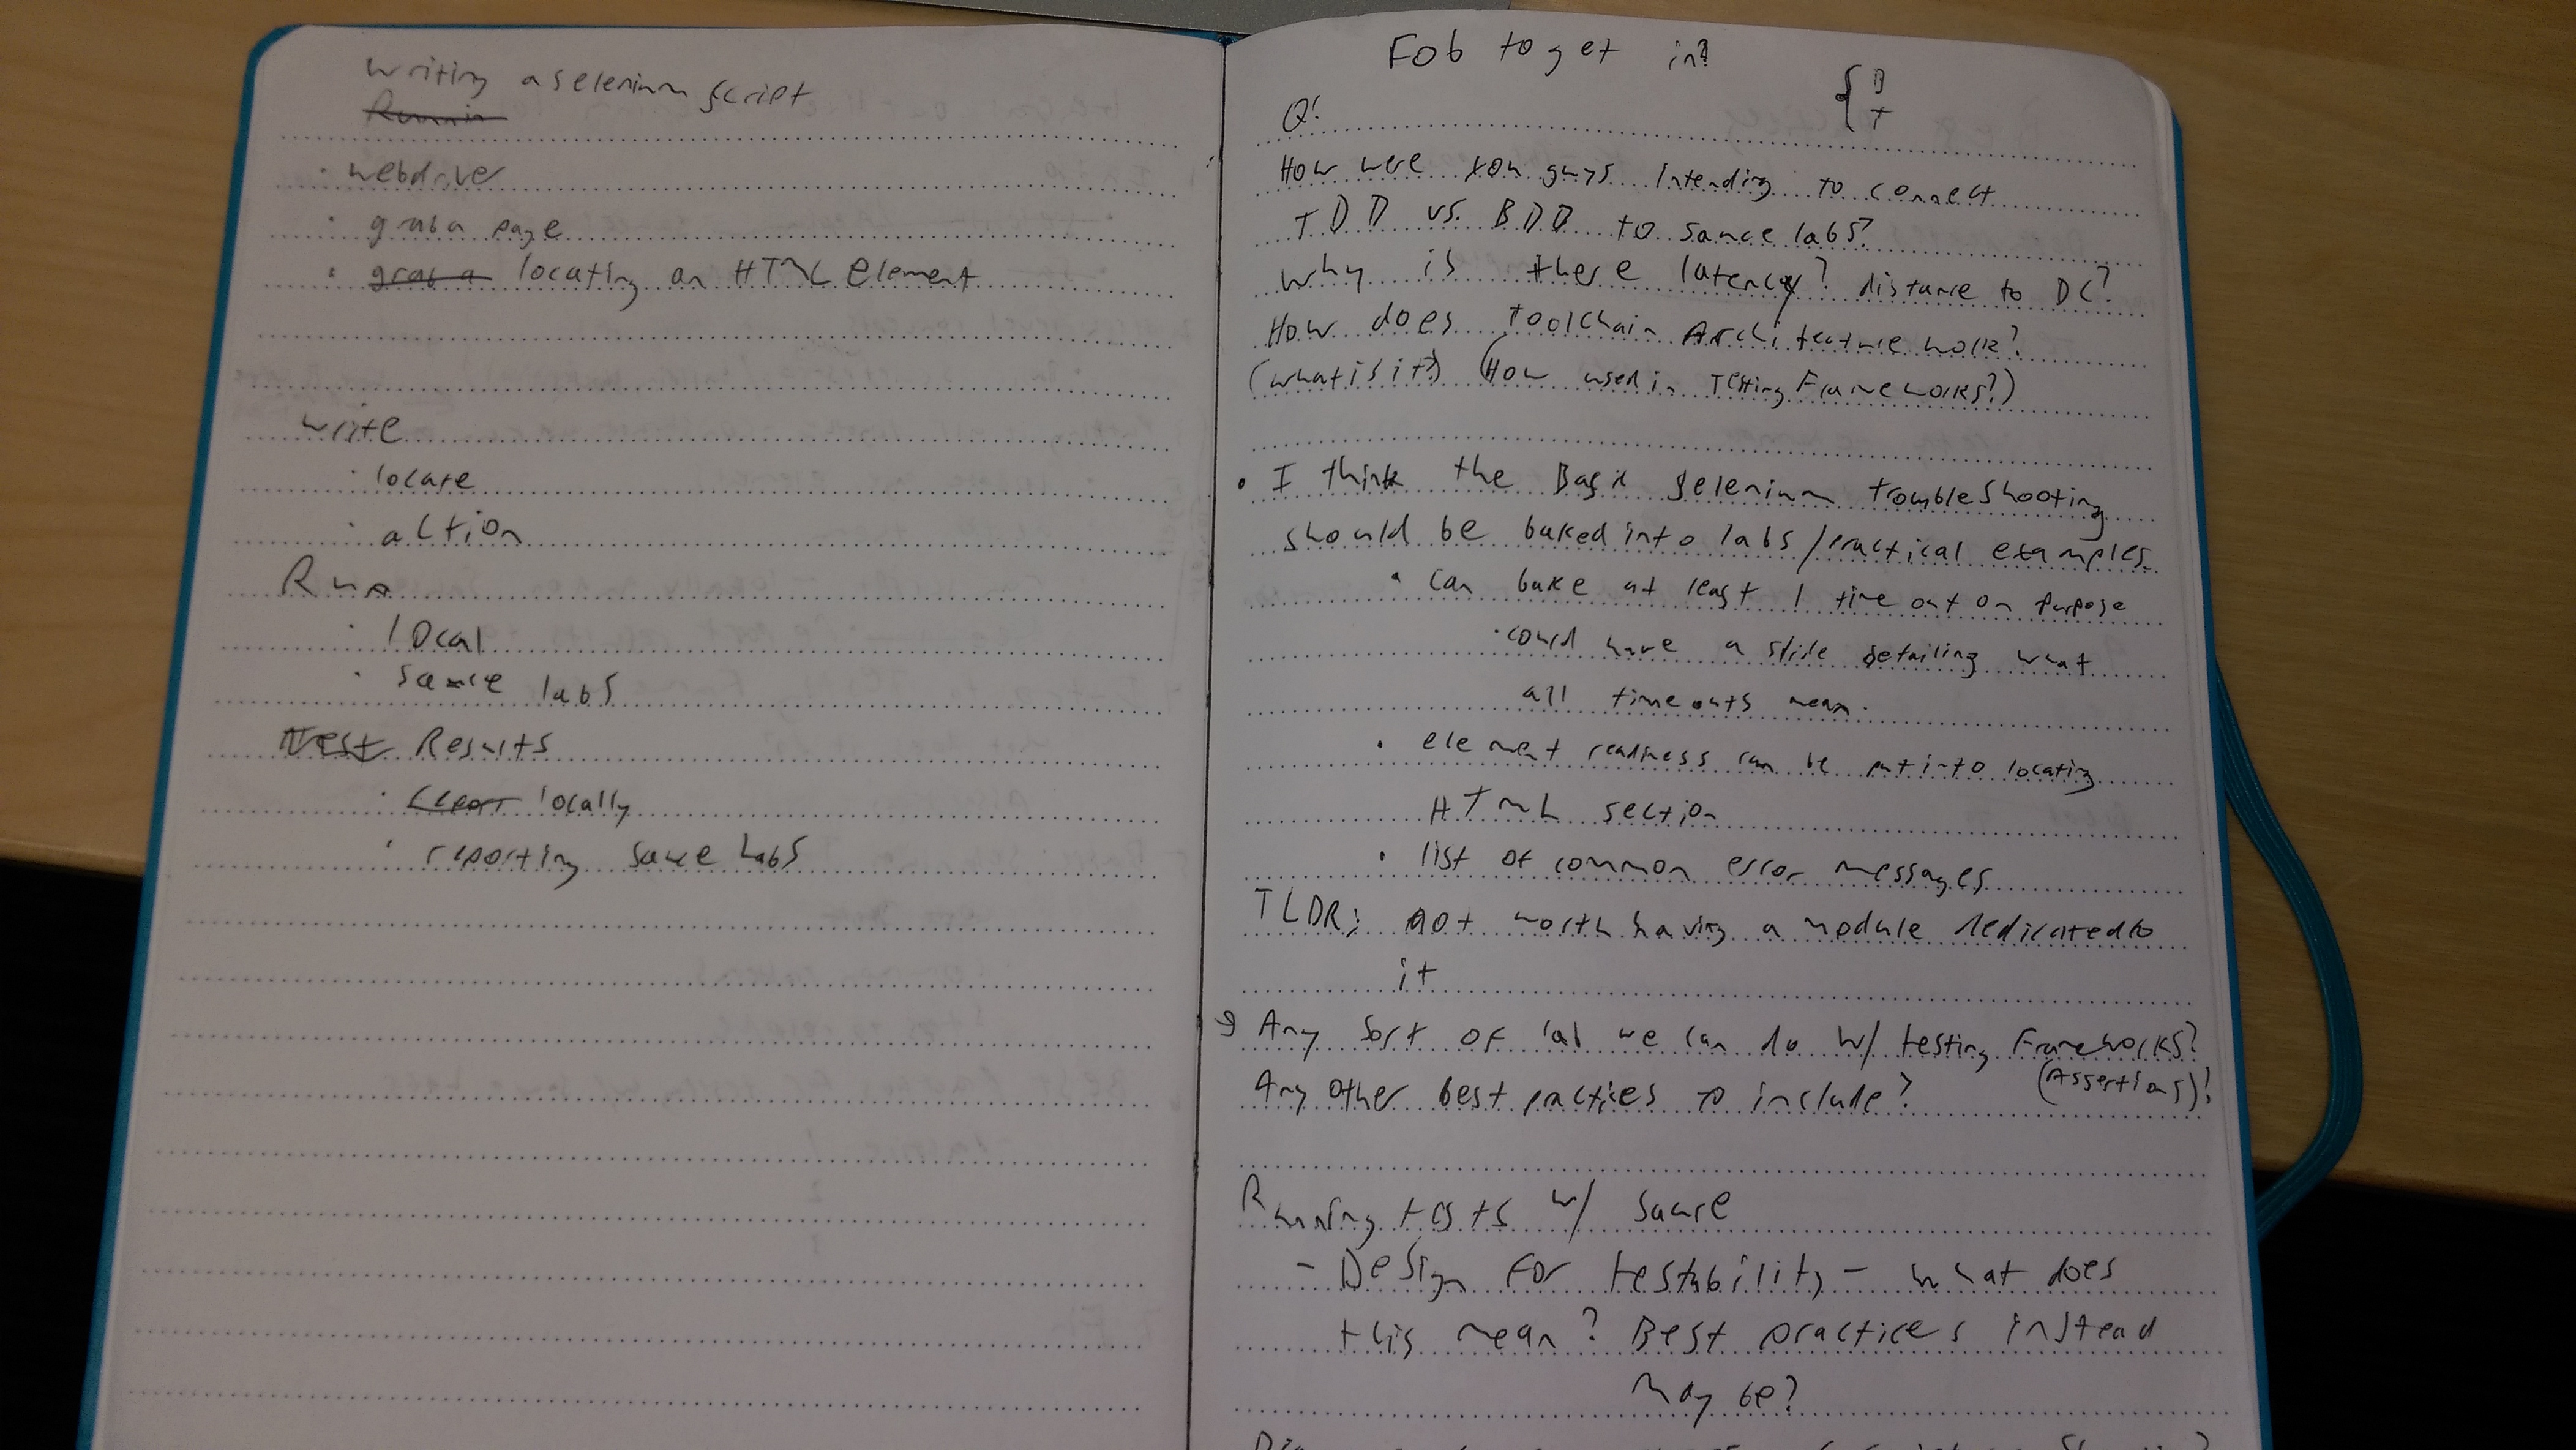 writing a selenium script
Runnin
· webdriver
· grab a page
· grab a locating an HTML Element
write
· locate
· action
Run
· local
· sauce labs
Test Results
· report locally
· reporting sauce Labs
Fob to get in?
{ B
T
Q:
How were you guys intending to connect
TDD vs. BDD to sauce labs?
Why is there latency? distance to DC?
How does toolchain Architecture work?
(what is it?) (How used in Testing Frameworks?)
· I think the Basic Selenium troubleshooting
should be baked into labs/practical examples.
· can bake at least 1 time out on purpose
· could have a slide detailing what
all timeouts mean.
· element readiness can be put into locating
HTML section
· list of common error messages
TLDR: not worth having a module dedicated to
it
→ Any sort of lab we can do w/ testing Frameworks?
(Assertions)!
Any other best practices to include?
Running tests w/ sauce
- Design for testability - what does
this mean? Best practices instead
may be?